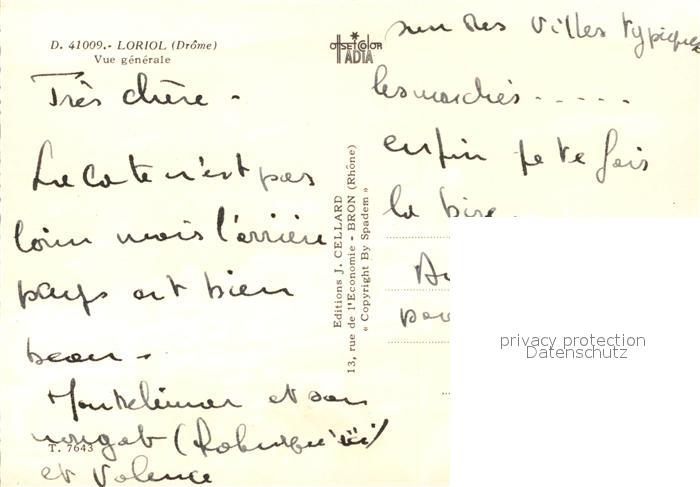 D. 41009.- LORIOL (Drôme)
Vue générale
Très chère -
La cote n'est pas
loin mais l'arrière
pays est bien
beau -
Montelimar et son
nougat (
et Valence
T. 7643
OFFSET COLOR
ADIA
Editions J. CELLARD
13, rue de l'Economie - BRON (Rhône)
« Copyright By Spadem »
sur des villes typiques
les marchés - - - - -
enfin je te fais
la bise.
privacy protection
Datenschutz